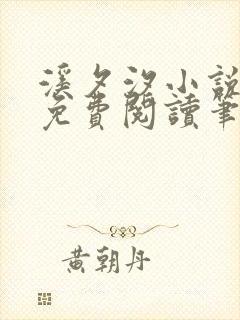 溪夕汐小說
免費閱讀筆
黃朝丹